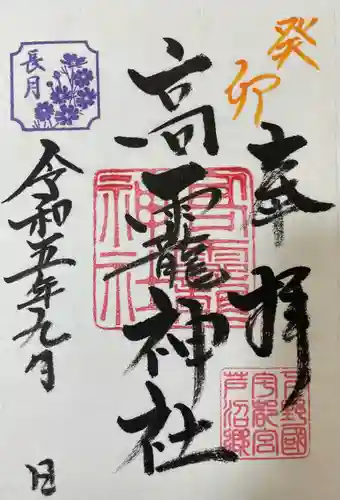 癸卯
奉拝
高龗神社
長月
令和五年九月 日
高龗神社
下野國
宇都宮
芦沼郷